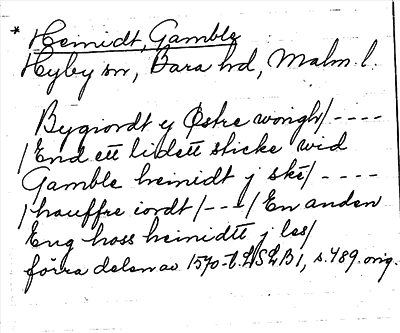 * Heinidt, Gamble
Hyby sn, Bara hd, Malm. l.
Bygiordt y Østre wongh/ - - - -
/End ett lidett sticke wid
Gamble heinidt j skē/ - - - -
/hauffre iordt/ - - -/En anden
Eng hoss heinidtt j les/
förra delen av 1570-t. LSLB1, s. 489. orig.